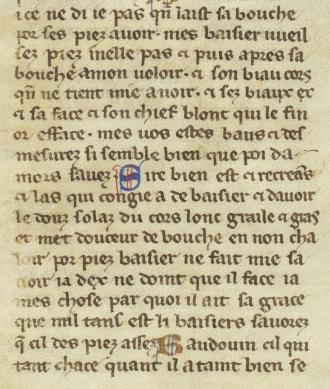 ice ne di ie pas qu̅ laist sa bouche
por ses piez auoir · mes baisier uueil
sez piez inelle pas ⁊ puis apres sa
bouche amon uoloir · ⁊ son biau cors
qu̅ ne tient mie a noir · ⁊ sez biaux ex
⁊ sa face ⁊ son chief blont qui le fin
or efface · mes uos estes baus ⁊ des
mesurez si semble bien que poi da
mors sauez · Sire bien est ⁊ recreans
⁊ las qui congie a de baisier ⁊ dauoir
le douz solaz du cors lonc graile ⁊ gras
et met douceur de bouche en non cha
loir por piez baisier ne fait mie sa
uoir ia dex ne doint que il face ia
mes chose par quoi il ait sa grace
que mil tans est li baisiers sauorez
q̅ cil des piez assez Baudouin cil qui
tant chace quant il ataint bien se